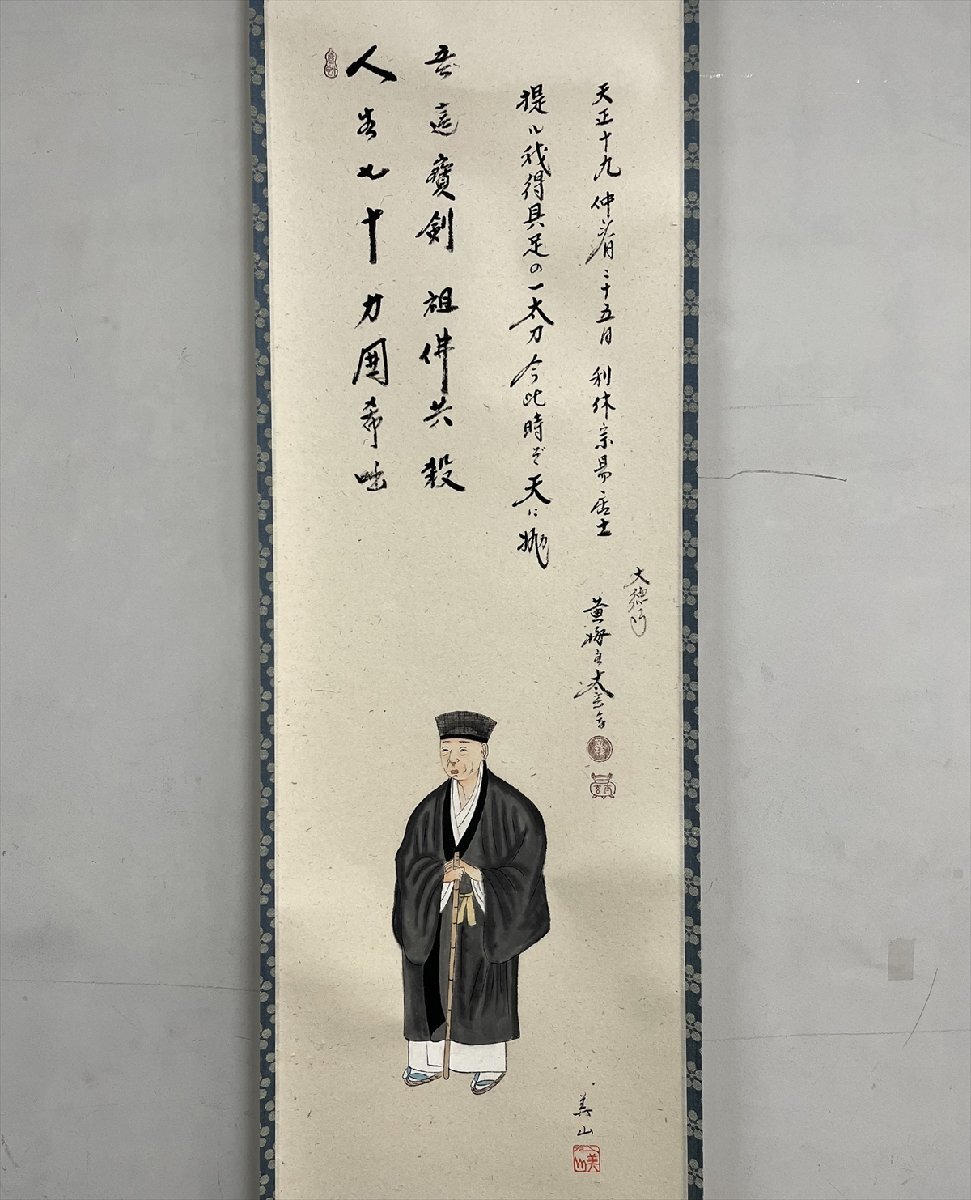 人生七十 力囲希咄
吾這寶剣 祖佛共殺
提ル我得具足の一太刀今此時ぞ天ニ抛
天正十九仲春二十五日 利休宗易居士
大徳
黄梅主太玄
美山
美山